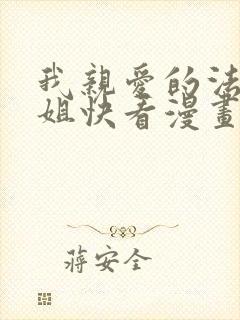 我親愛的法
姐快看漫畫
蔣安全